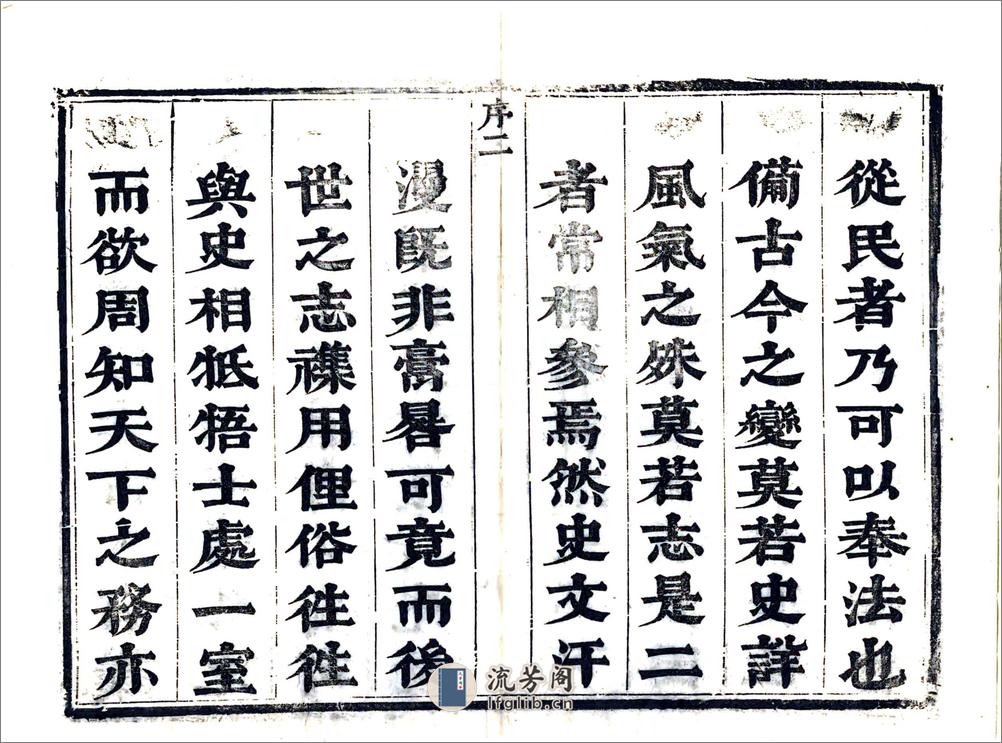 從民者乃可以奉法也
備古今之變莫若史詳
風氣之殊莫若志是二
者常相參焉然史文汗
序二
漫既非膏晷可竟而後
世之志襍用俚俗徃徃
與史相牴牾士處一室
而欲周知天下之務亦
流芳阁
lfglib.cn